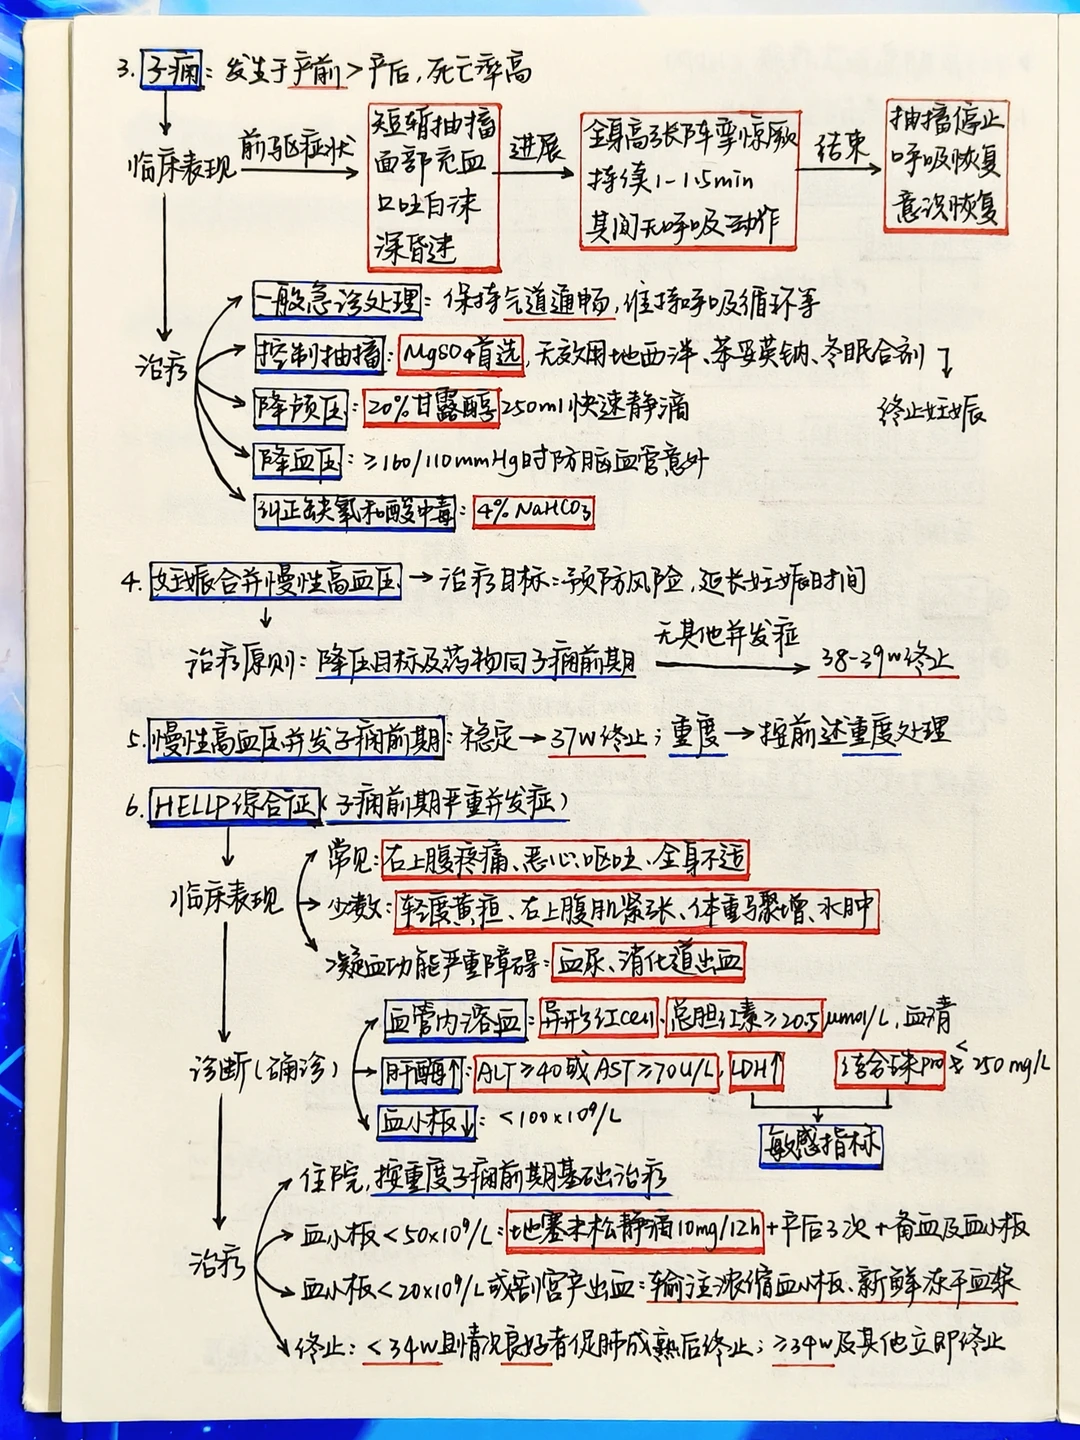 3. 子痫：发生于产前＞产后，死亡率高
临床表现 前驱症状 → 短暂抽搐 面部充血 口吐白沫 深昏迷 进展 → 全身高张阵挛惊厥 持续1-1.5min 其间无呼吸动作 结束 → 抽搐停止 呼吸恢复 意识恢复
治疗
一般急诊处理：保持气道通畅，维持呼吸循环等
控制抽搐：MgSO4首选，无效用地西泮、苯妥英钠、冬眠合剂
终止妊娠
降颅压：20%甘露醇250ml快速静滴
降血压：≥160/110mmHg时防脑血管意外
纠正缺氧和酸中毒：4%NaHCO3
4. 妊娠合并慢性高血压 → 治疗目标：预防风险，延长妊娠时间
治疗原则：降压目标及药物同子痫前期 无其他并发症 → 38-39w终止
5. 慢性高血压并发子痫前期：稳定→37w终止；重度→按前述重度处理
6. HELLP综合征（子痫前期严重并发症）
临床表现
常见：右上腹疼痛、恶心、呕吐、全身不适
少数：轻度黄疸、右上腹肌紧张、体重骤增、水肿
凝血功能严重障碍：血尿、消化道出血
诊断（确诊）
血管内溶血：异形红cell、总胆红素≥20.5μmol/L，血清
结合珠pro<250mg/L
肝酶↑：ALT≥40或AST≥70U/L，LDH↑
血小板↓：<100×10⁹/L
敏感指标
治疗
住院，按重度子痫前期基础治疗
血小板<50×10⁹/L：地塞米松静滴10mg/12h+产后3次+备血及血小板
血小板<20×10⁹/L或剖宫产出血：输注浓缩血小板、新鲜冻干血浆
终止：<34w且情况良好者促肺成熟后终止；≥34w及其他立即终止